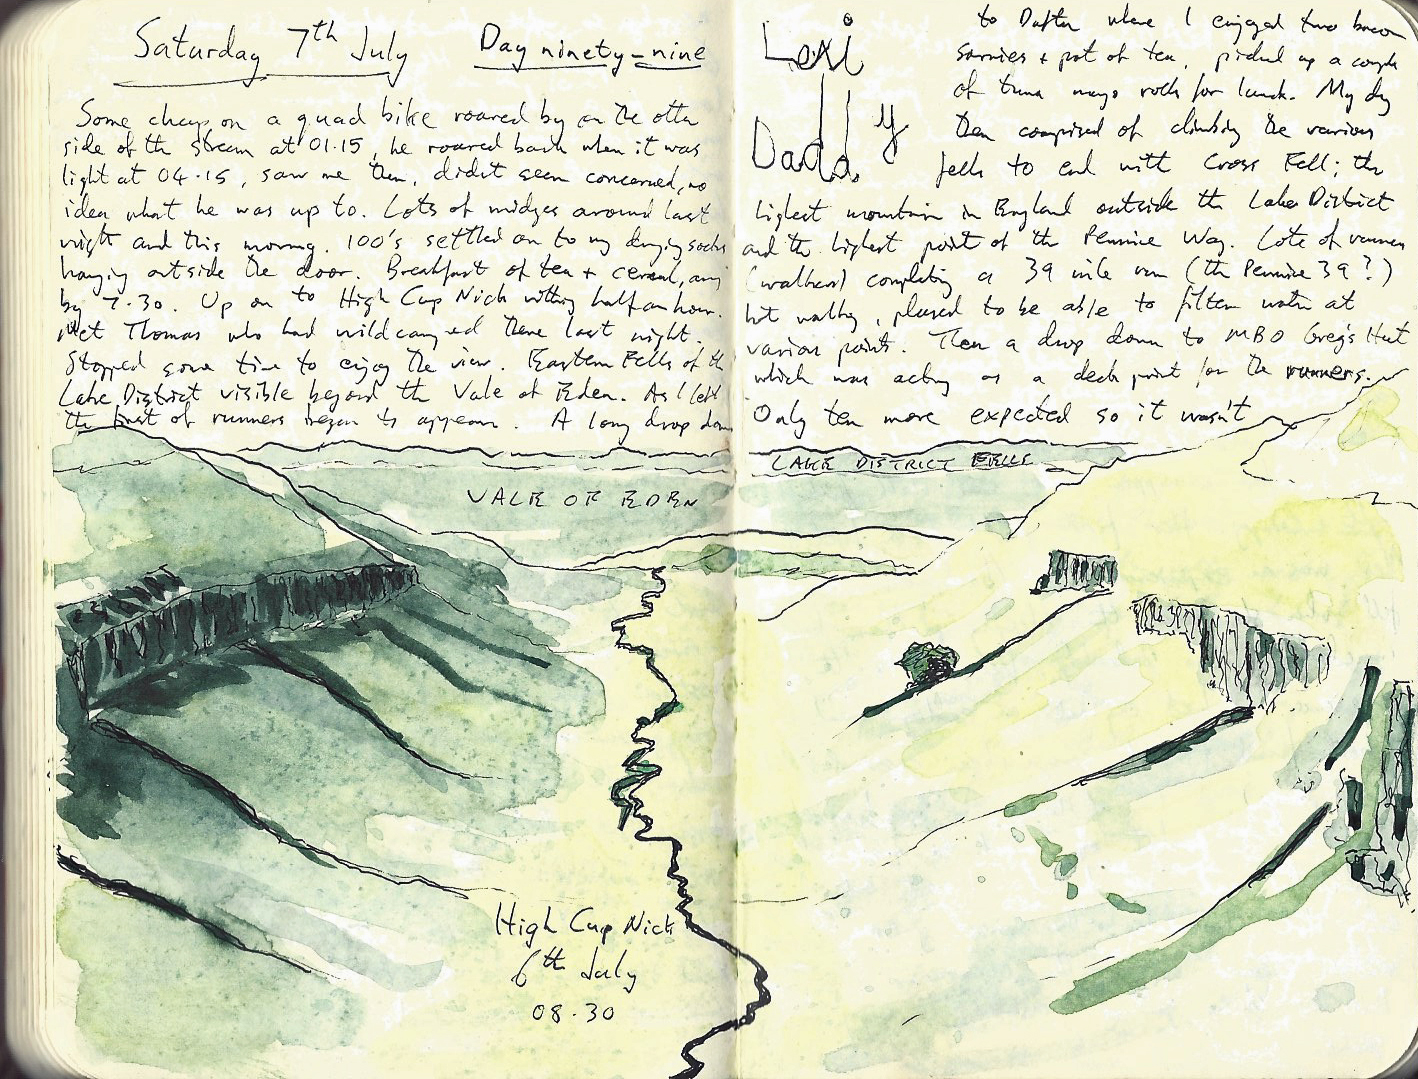 Saturday 7th July Day ninety-nine
Some chap on a quad bike roared by on the other
side of the stream at 01.15, he roared back when it was
light at 04.15, saw me then, didn't seem concerned, no
idea what he was up to. Lots of midges around last
night and this morning. 100's settled on to my drying socks
hanging outside the door. Breakfast of tea + cereal, away
by 7.30. Up on to High Cup Nick withing half an hour.
Met Thomas who had wild camped there last night.
Stopped some time to enjoy the view. Eastern Fells of the
Lake District visible beyond the Vale of Eden. As I left
the first of runners began to appear. A long drop down
Lexi
Daddy
to Dufton where I enjoyed two bacon
sarnies + pot of tea, picked up a couple
of tuna mayo rolls for lunch. My day
then comprised of climbing the various
fells to end with Cross Fell; the
highest mountain in England outside the Lake District
and the highest point of the Pennine Way. Lots of runners
(walkers) completing a 39 mile run (the Pennine 39?)
hot walking, pleased to be able to filter water at
various points. Then a drop down to MBO Greg's Hut
which was acting as a check point for the runners.
Only ten more expected so it wasn't
LAKE DISTRICT FELLS
VALE OF EDEN
High Cup Nick
6th July
08.30